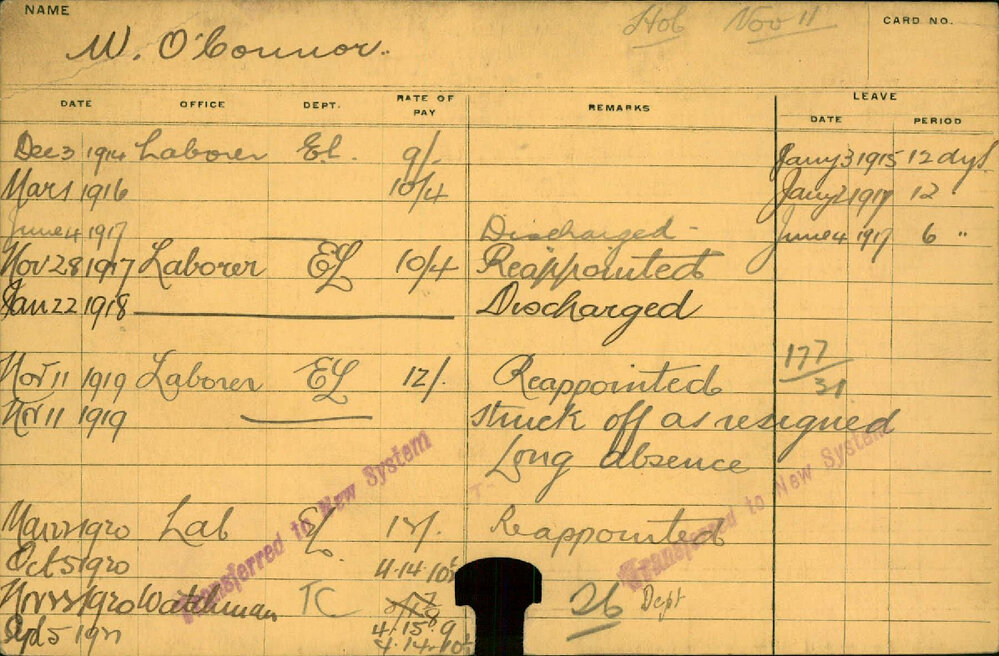 NAME
W. O'Connor.
Nov 11
CARD NO.
DATE OFFICE DEPT. RATE OF PAY REMARKS LEAVE
DATE PERIOD
Dec 3 1914 Laborer EL. 9/- Jany 3 1915 12 dys.
Mar 1 1916 10/4 Jany 2 1917 12 "
June 4 1917 Discharged - June 4 1917 6 "
Nov 28 1917 Laborer EL 10/4 Reappointed
Jan 22 1918 Discharged
177/31
Nov 11 1919 Laborer EL 12/- Reappointed
Nov 11 1919 Struck off as resigned
Long absence
Transferred to New System
Transferred to New System
Mar 22 1920 Lab EL 12/- Reappointed
Oct 5 1920 4.14.10½
1920 Watchman TC 26 Dept
4.15.9
Sept 5 1921 4.14.10½